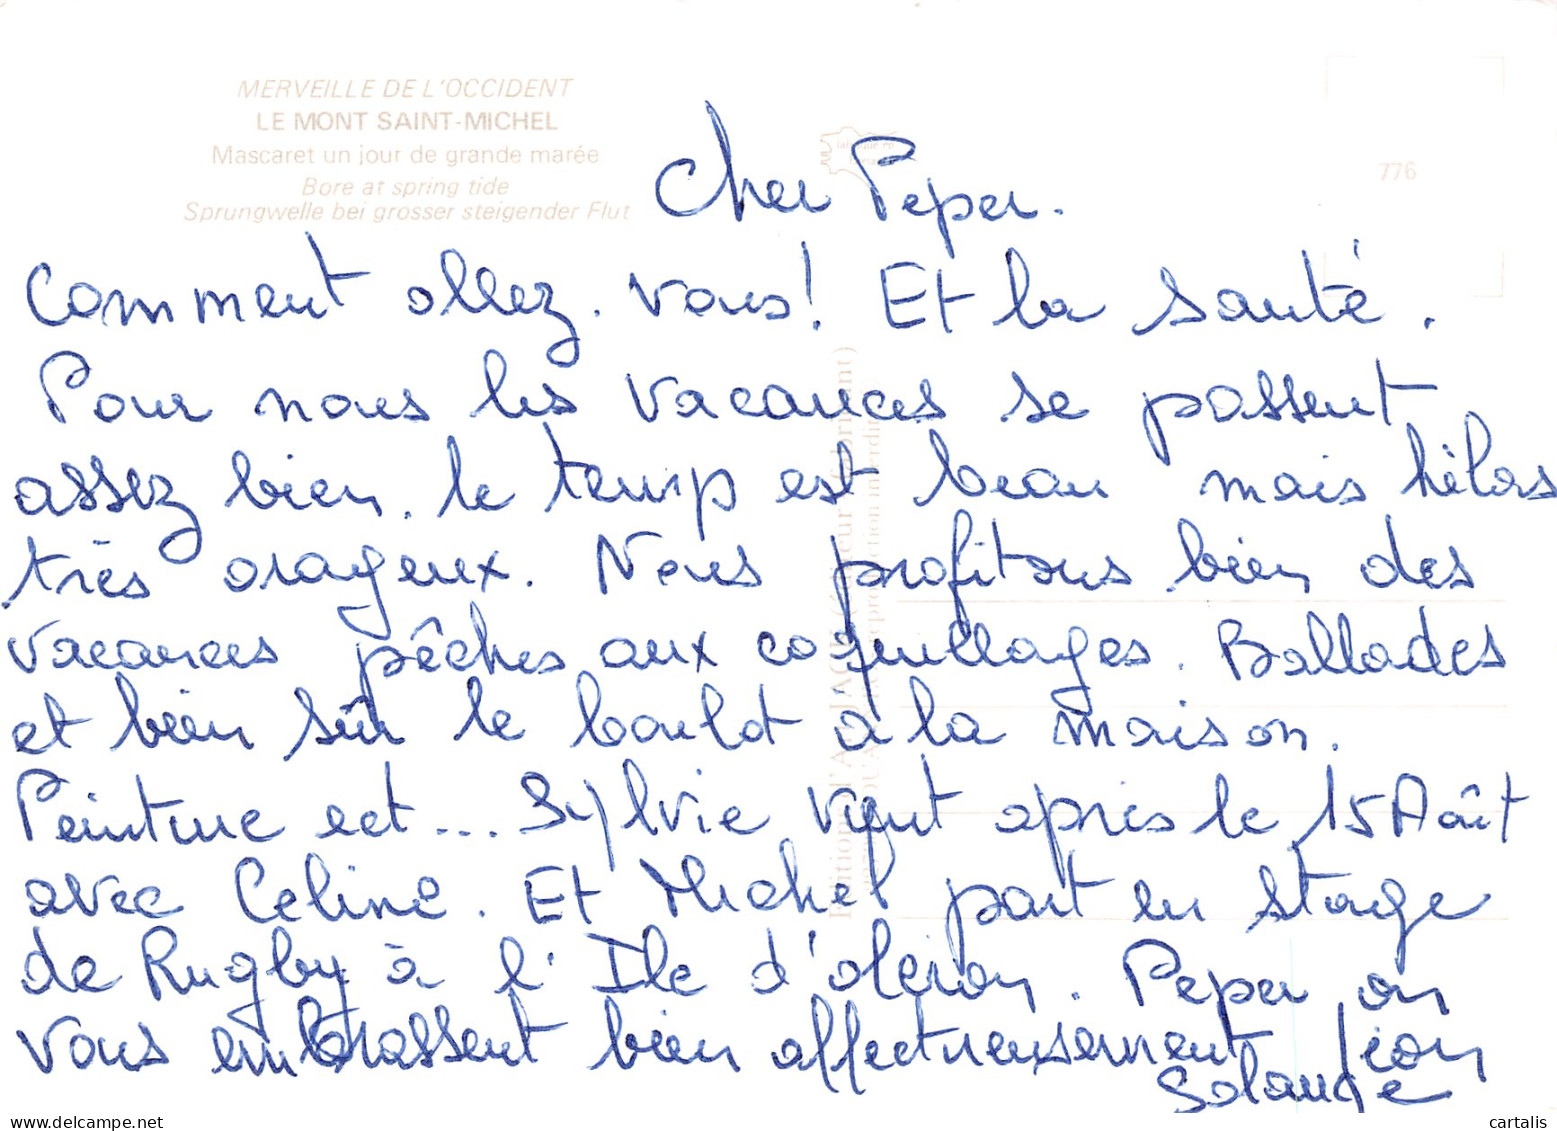 MERVEILLE DE L'OCCIDENT
LE MONT SAINT-MICHEL
Mascaret un jour de grande marée
Bore at spring tide
Sprungwelle bei grosser steigender Flut
776
Cher Peper.
Comment allez. vous! Et la santé.
Pour nous les vacances se passent
assez bien. le temps est beau mais hélas
très orageux. Nous profitons bien des
vacances pêches aux coquillages. Ballades
et bien sûr le boulot à la maison.
Peinture ect... Sylvie vient après le 15 Août
avec Celine. Et Michel part en stage
de Rugby à l'Ile d'oleron. Peper on
vous embrassent bien affectueusement Léon
Solange
cartalis
www.delcampe.net